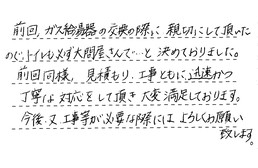 前回、ガス給湯器の交換の際に親切にして頂いた
ので、トイレも必ず大問屋さんで…と決めておりました。
前回同様、見積もり、工事ともに迅速かつ
丁寧な対応をして頂き大変満足しております。
今後、又工事等が必要な際にはよろしくお願い
致します。